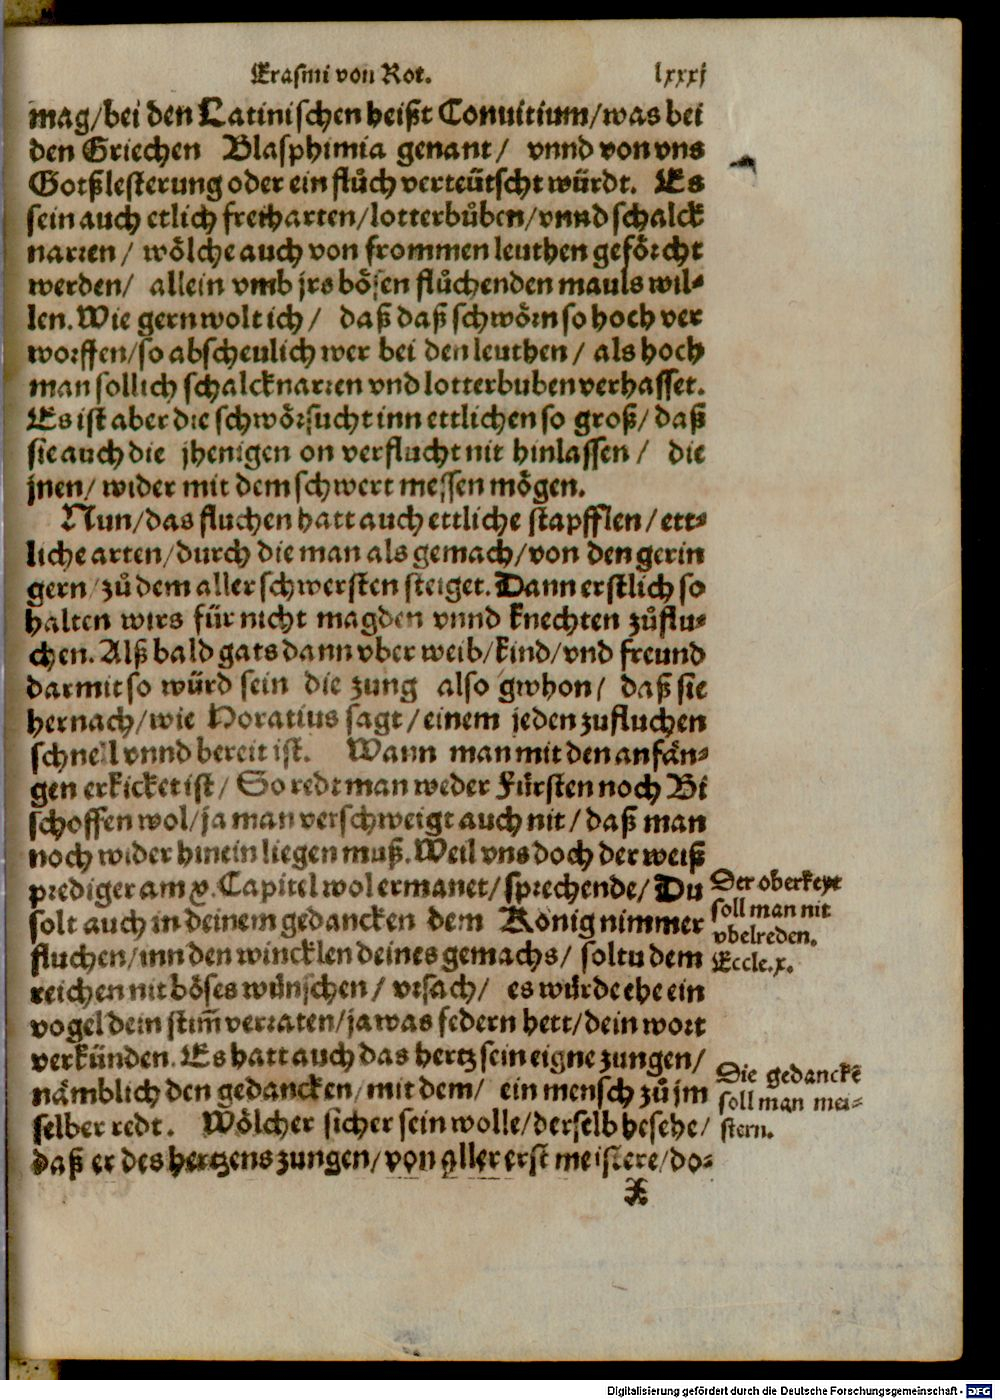 Erasmi von Rot. lxxxj
mag/bei den Latinischen heißt Conuitium/was bei
den Griechen Blasphimia genant/ vnnd von vns
Gotßlesterung oder ein flůch verteütscht würdt. Es
sein auch etlich freiharten/lotterbůben/vnnd schalck
narren/ wőlche auch von frommen leuthen gefőrcht
werden/ allein vmb jrs bősen flůchenden mauls wil-
len. Wie gern wolt ich/ daß daß schwőrn so hoch ver
worffen/so abscheulich wer bei den leuthen/ als hoch
man sollich schalcknarren vnd lotterbuben verhasset.
Es ist aber die schwőrsucht inn ettlichen so groß/ daß
sie auch die jhenigen on verflucht nit hinlassen/ die
jnen/ wider mit dem schwert messen mőgen.
Nun/das fluchen hatt auch ettliche stapfflen/ett-
liche arten/durch die man als gemach/von den gerin
gern/zů dem aller schwersten steiget. Dann erstlich so
halten wirs für nicht magden vnnd knechten zůflu-
chen. Alß bald gats dann vber weib/kind/vnd freund
darmit so würd sein die zung also gwhon/ daß sie
hernach/wie Horatius sagt/einem jeden zufluchen
schnell vnnd bereit ist. Wann man mit den anfän-
gen erkicket ist/ So redt man weder Fürsten noch Bi
schoffen wol/ja man verschweigt auch nit/daß man
noch wider hinein liegen muß. Weil vns doch der weiß
prediger am x. Capitel wol ermanet/sprechende/Du
solt auch in deinem gedancken dem Kőnig nimmer
fluchen/inn den wincklen deines gemachs/ soltu dem
reichen nit bőses wünschen/ vrsach/ es würde ehe ein
vogel dein stim̃ verraten/ja was federn hett/dein wort
verkünden. Es hatt auch das hertz sein eigne zungen/
nämblich den gedancken/mit dem/ ein mensch zů jm
selber redt. Wőlcher sicher sein wolle/derselb besehe/
daß er des hertzens zungen/von aller erst meistere/do-
X
Der oberkeyt
soll man nit
vbelreden.
Eccle.x.
Die gedanckẽ
soll man mei-
stern.
Digitalisierung gefördert durch die Deutsche Forschungsgemeinschaft - DFG